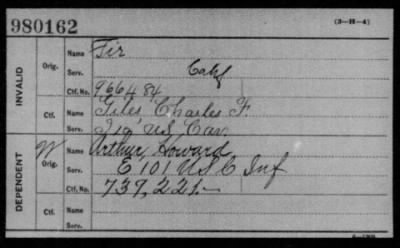 980162 (3—H—4)
INVALID
Orig. Name
Serv. Calif
Ctf. No. 966484
Ctf. Name Giles Charles F.
Serv. US Cav.
DEPENDENT
W Orig. Name Arthur Howard
Serv. E 101 US C Inf
Ctf. No. 737,221.—
Ctf. Name
Serv.